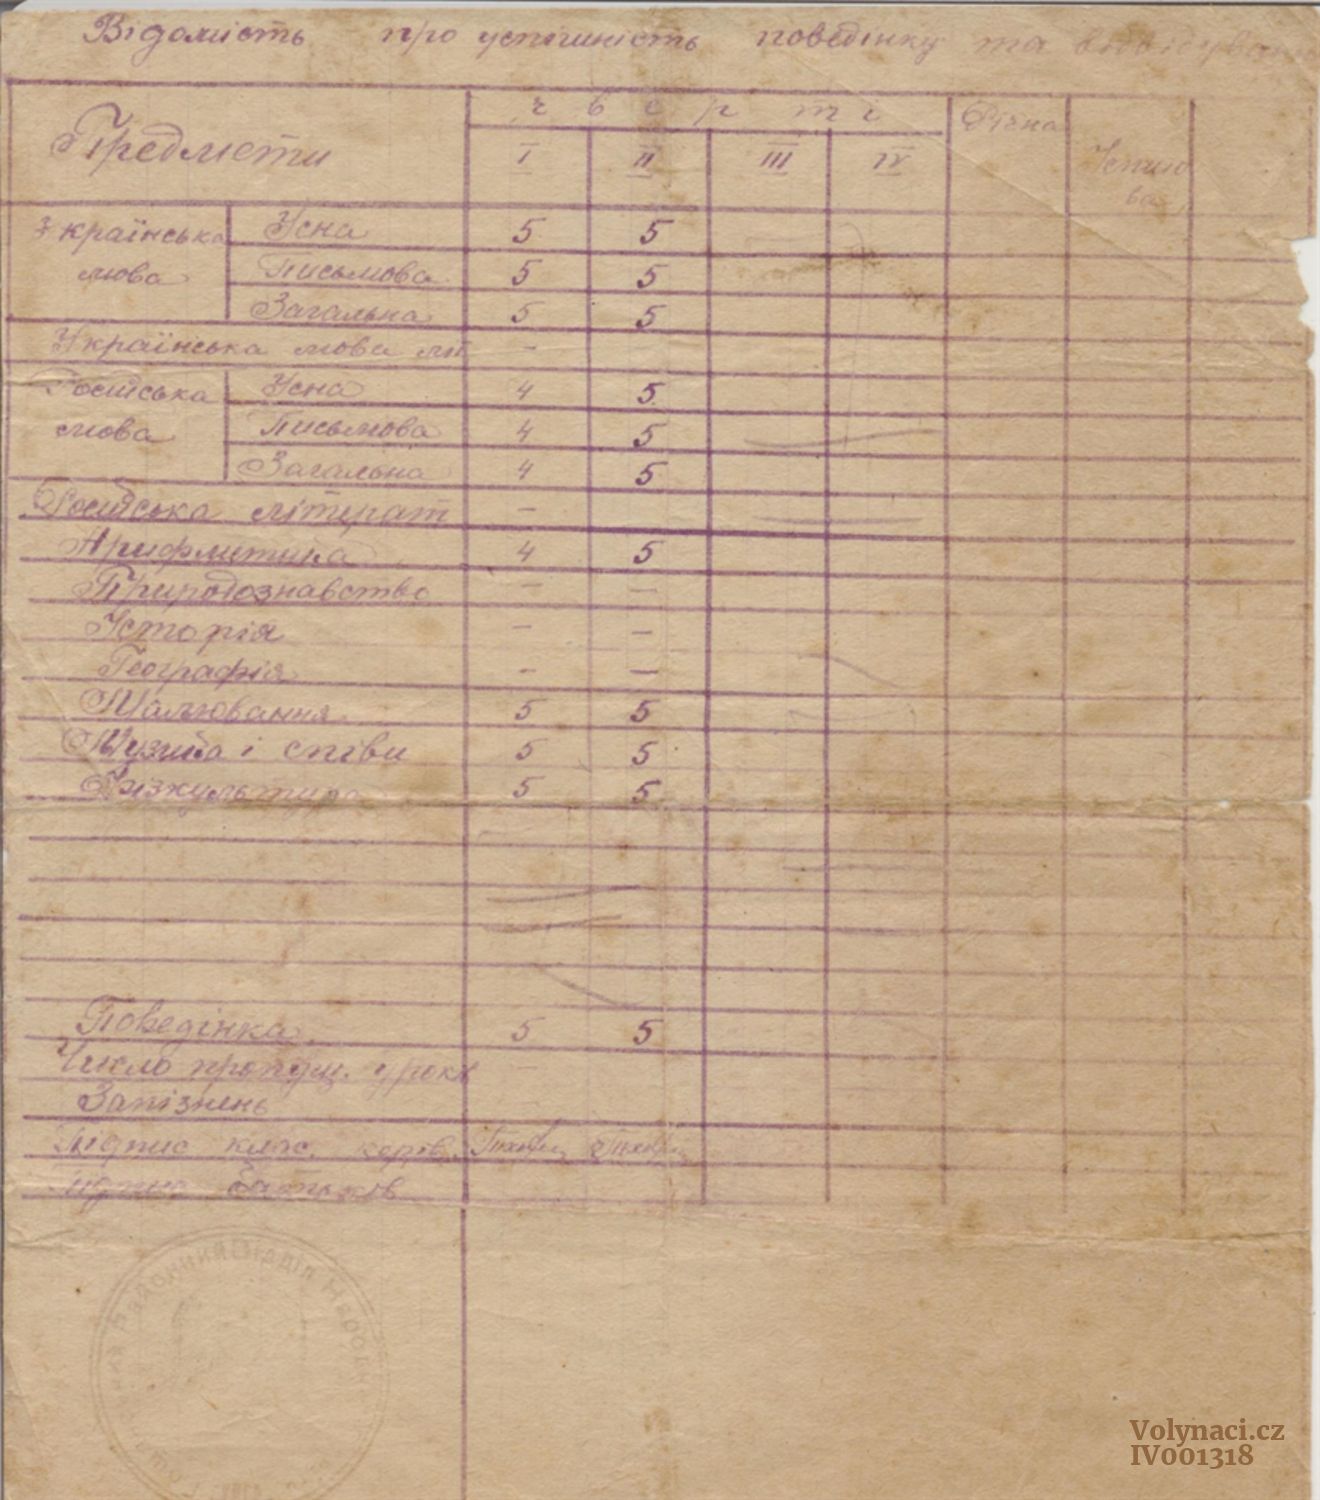 Відомість про успішність поведінку та відвідуван
Предмети
чверті
I II III IV
Річна
Іспито
ва
Українська
мова
Усна 5 5
Письмова 5 5
Загальна 5 5
Українська мова літ –
Російська
мова
Усна 4 5
Письмова 4 5
Загальна 4 5
Російська літерат –
Арифметика 4 5
Природознавство – –
Історія – –
Географія – –
Малювання 5 5
Музика і співи 5 5
Фізкультура 5 5
Поведінка 5 5
Число пропущ. уроків
Запізнень
Підпис клас. керів.
Підпис батьків
Районний Відділ Народн
Volynaci.cz
IV001318